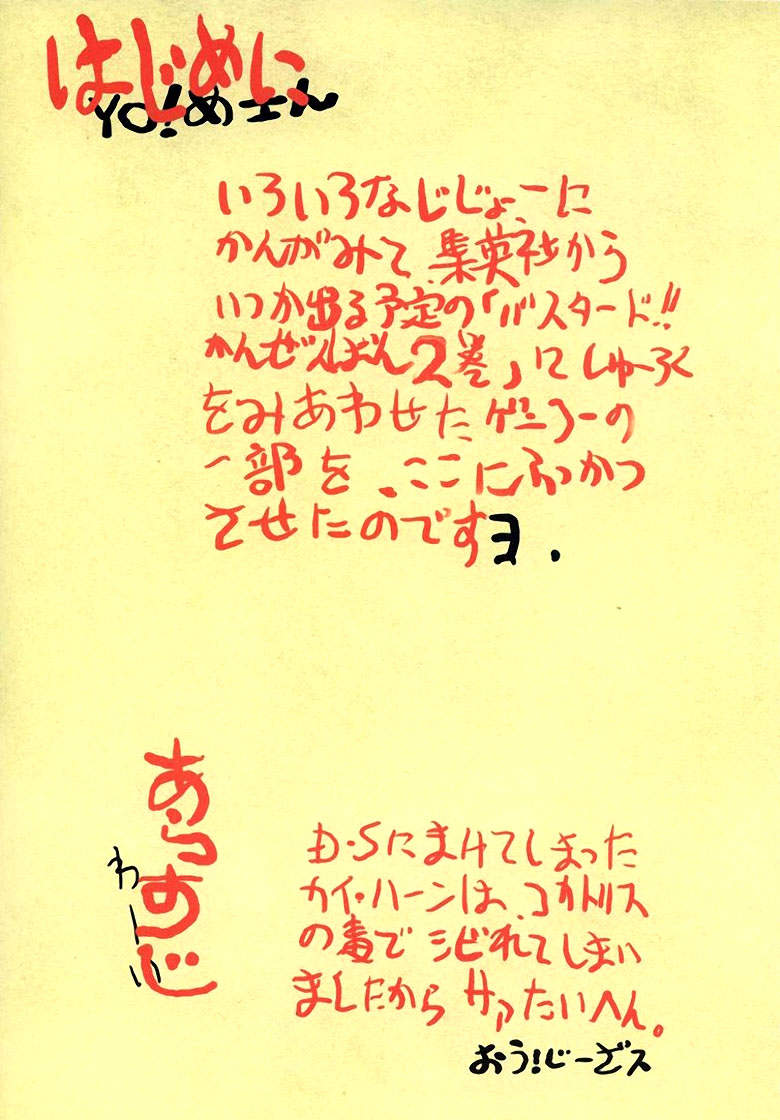 はじめに
YO!めさん
いろいろなじじょーに
かんがみて、集英社から
いつか出る予定の「バスタード!!
かんぜんばん2巻」にしゅーろく
をみあわせたゲンコーの
一部を、ここにふっかつ
させたのですヨ.
あらすじ
わーい
D・Sにまけてしまった
カイ・ハーンは、コカトリス
の毒でシビれてしまい
ましたからサアたいへん。
おう!じーざス